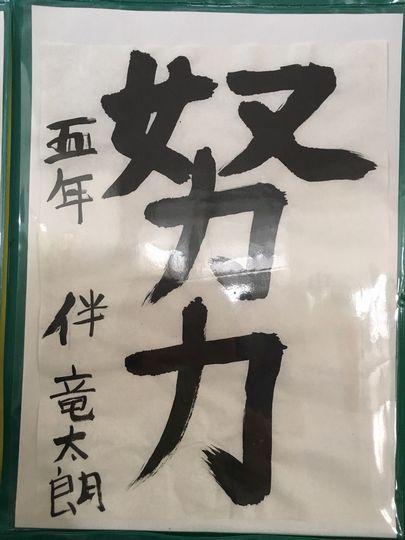 努力
五年 伴 竜太朗